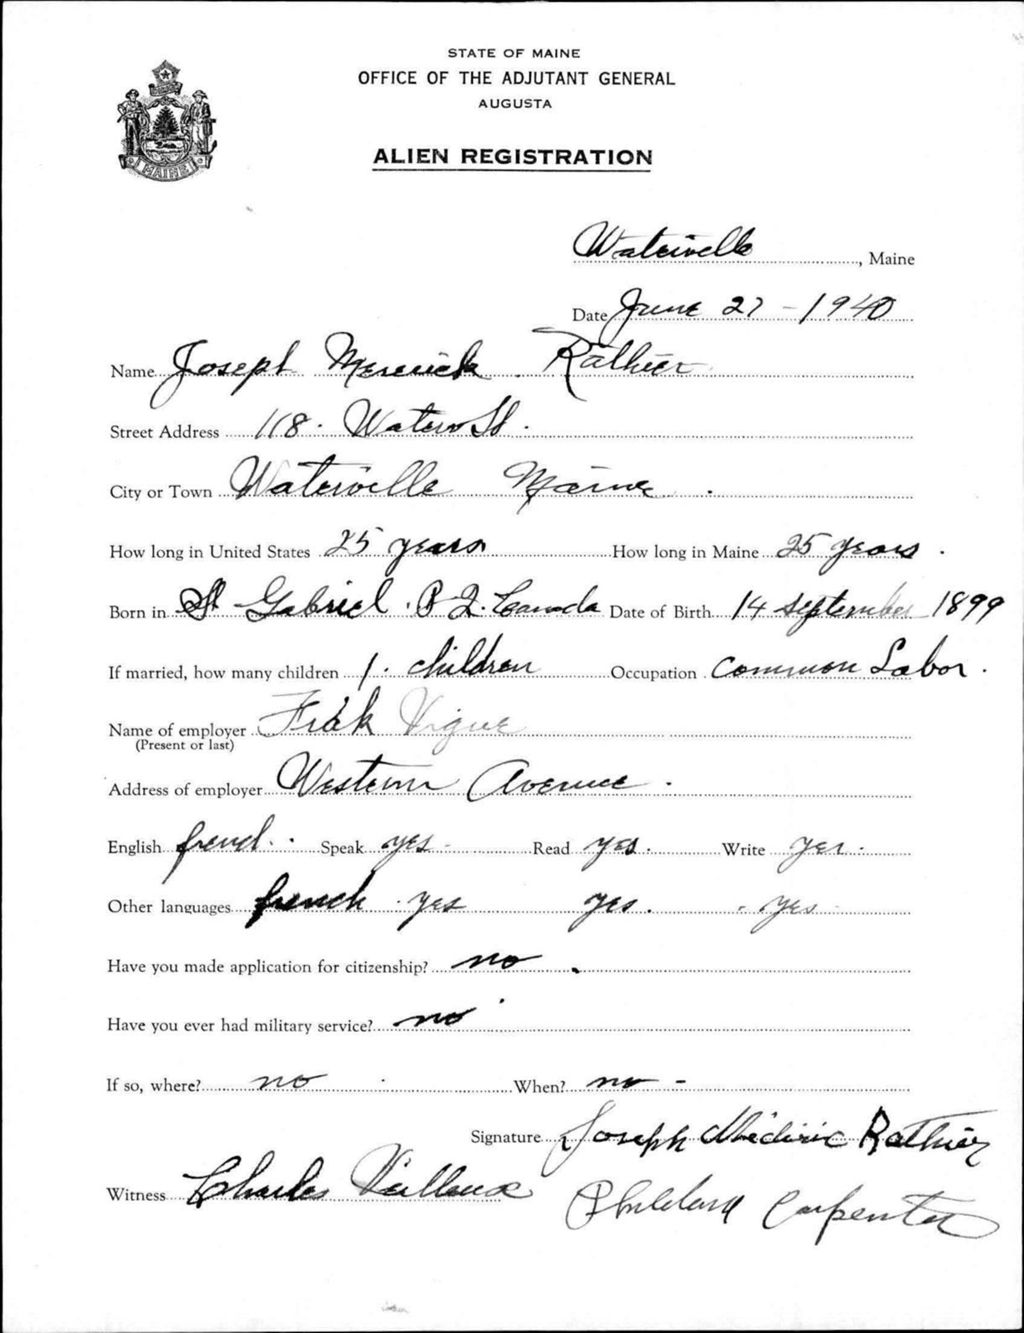 STATE OF MAINE
OFFICE OF THE ADJUTANT GENERAL
AUGUSTA
ALIEN REGISTRATION
MAINE
Waterville, Maine
Date June 27 - 1940
Name Joseph Merrick. Rathier
Street Address 118. Water St.
City or Town Waterville Maine.
How long in United States 25 years How long in Maine 25 years.
Born in St Gabriel. P Q. Canada Date of Birth 14 september 1899
If married, how many children 1. children Occupation common Labor.
Name of employer Frak Vigue
(Present or last)
Address of employer Western Avenue.
English frencl. Speak yes Read yes. Write yes.
Other languages french yes yes. yes
Have you made application for citizenship? no.
Have you ever had military service? no
If so, where? no When? no -
Signature Joseph Médéric Rathier
Witness Charles Veilleux Carpenter